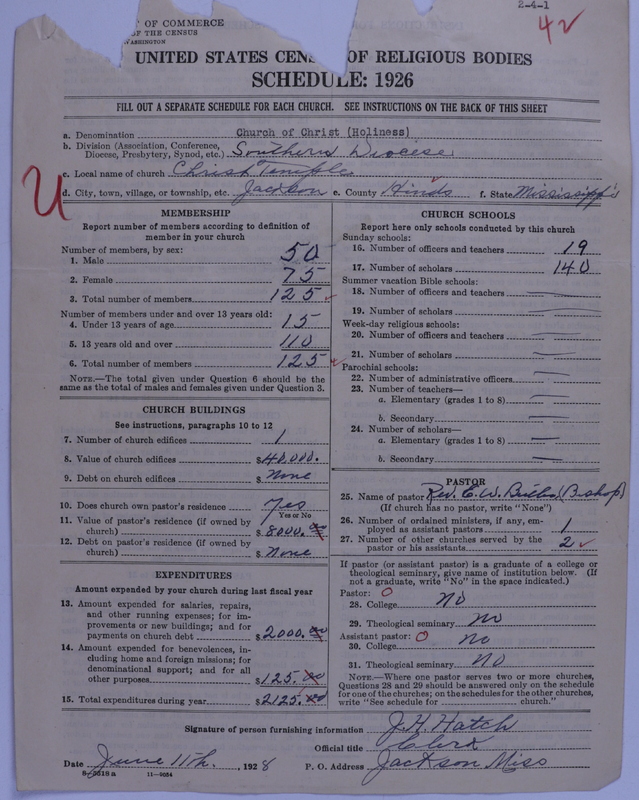 2-4-1
42
T OF COMMERCE
OF THE CENSUS
WASHINGTON
UNITED STATES CENS OF RELIGIOUS BODIES
SCHEDULE: 1926
FILL OUT A SEPARATE SCHEDULE FOR EACH CHURCH. SEE INSTRUCTIONS ON THE BACK OF THIS SHEET
a. Denomination Church of Christ (Holiness)
b. Division (Association, Conference,
Diocese, Presbytery, Synod, etc.) Southern Diocese
c. Local name of church Christ Temple
U
d. City, town, village, or township, etc. Jackson e. County Hinds f. State Mississippi
MEMBERSHIP
Report number of members according to definition of
member in your church
Number of members, by sex:
1. Male 50
2. Female 75
3. Total number of members 125
Number of members under and over 13 years old:
4. Under 13 years of age 15
5. 13 years old and over 110
6. Total number of members 125
NOTE.—The total given under Question 6 should be the
same as the total of males and females given under Question 3.
CHURCH BUILDINGS
See instructions, paragraphs 10 to 12
7. Number of church edifices 1
8. Value of church edifices $40,000.
9. Debt on church edifices $ None
10. Does church own pastor's residence Yes
Yes or No
11. Value of pastor's residence (if owned by
church) $8000.00
12. Debt on pastor's residence (if owned by
church) $ None
EXPENDITURES
Amount expended by your church during last fiscal year
13. Amount expended for salaries, repairs,
and other running expenses; for im-
provements or new buildings; and for
payments on church debt $2000.00
14. Amount expended for benevolences, in-
cluding home and foreign missions; for
denominational support; and for all
other purposes $125.00
15. Total expenditures during year $2125.00
CHURCH SCHOOLS
Report here only schools conducted by this church
Sunday schools:
16. Number of officers and teachers 19
17. Number of scholars 140
Summer vacation Bible schools:
18. Number of officers and teachers
19. Number of scholars
Week-day religious schools:
20. Number of officers and teachers
21. Number of scholars
Parochial schools:
22. Number of administrative officers
23. Number of teachers—
a. Elementary (grades 1 to 8)
b. Secondary
24. Number of scholars—
a. Elementary (grades 1 to 8)
b. Secondary
PASTOR
25. Name of pastor Rev. E. W. (Bishop)
(If church has no pastor, write "None")
26. Number of ordained ministers, if any, em-
ployed as assistant pastors 1
27. Number of other churches served by the
pastor or his assistants 2
If pastor (or assistant pastor) is a graduate of a college or
theological seminary, give name of institution below. (If
not a graduate, write "No" in the space indicated.)
Pastor: 0
28. College No
29. Theological seminary No
Assistant pastor: 0
30. College No
31. Theological seminary No
NOTE.—Where one pastor serves two or more churches,
Questions 28 and 29 should be answered only on the schedule
for one of the churches; on the schedules for the other churches,
write "See schedule for church."
Signature of person furnishing information J. H. Hatch
Official title Clerk
Date June 11th, 1928 P. O. Address Jackson Miss
8-6518a 11-9034